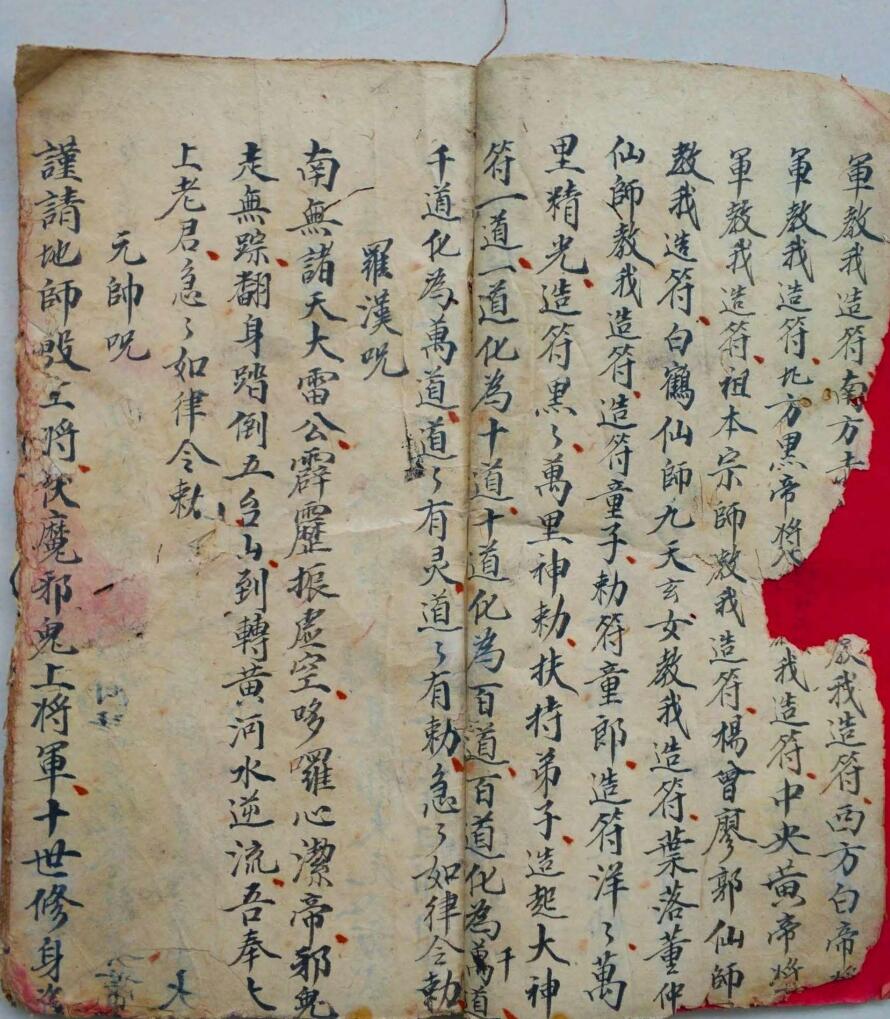 軍教我造符南方赤 教我造符西方白帝將
軍教我造符北方黑帝將 我造符中央黃帝將
軍教我造符祖本宗師教我造符楊曾廖郭仙師
教我造符白鶴仙師九天玄女教我造符葉落董仲
仙師教我造符造符童子勅符童郎造符洋々萬
里精光造符黑々萬里神勅扶持弟子造起大神
符一道一道化為十道十道化為百道百道化為千萬道
千道化為萬道道々有灵道々有勅急々如律令勅
羅漢咒
南無諸天大雷公霹靂振虛空哆囉心潔帝邪鬼
走無踪翻身踏倒五台山到轉黃河水逆流吾奉七
上老君急々如律令勅
元帥咒
謹請地師殷王將伏魔邪鬼上將軍十世修身